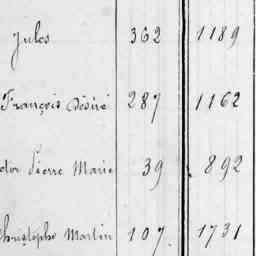 Jules 362 1189
François Désiré 287 1162
Pierre Marie 39 892
Christophe Martin 107 1731